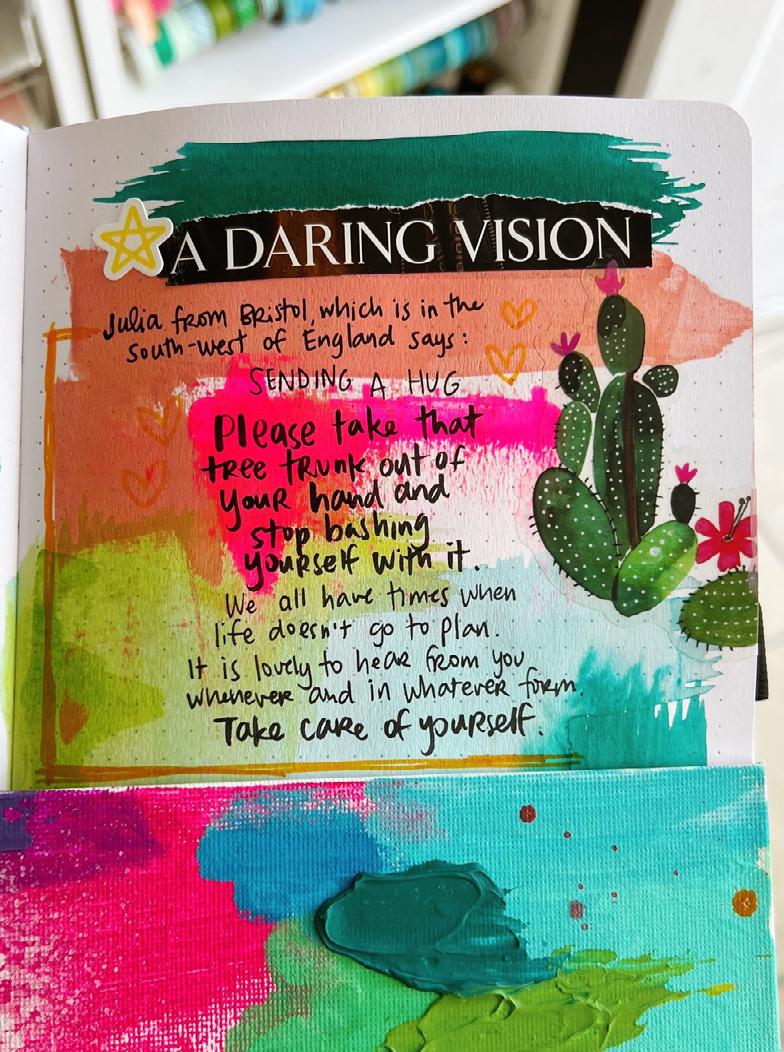 A DARING VISION
Julia from Bristol, which is in the
south-west of England says:
SENDING A HUG
Please take that
tree trunk out of
your hand and
stop bashing
yourself with it.
We all have times when
life doesn't go to plan.
It is lovely to hear from you
whenever and in whatever form.
Take care of yourself.